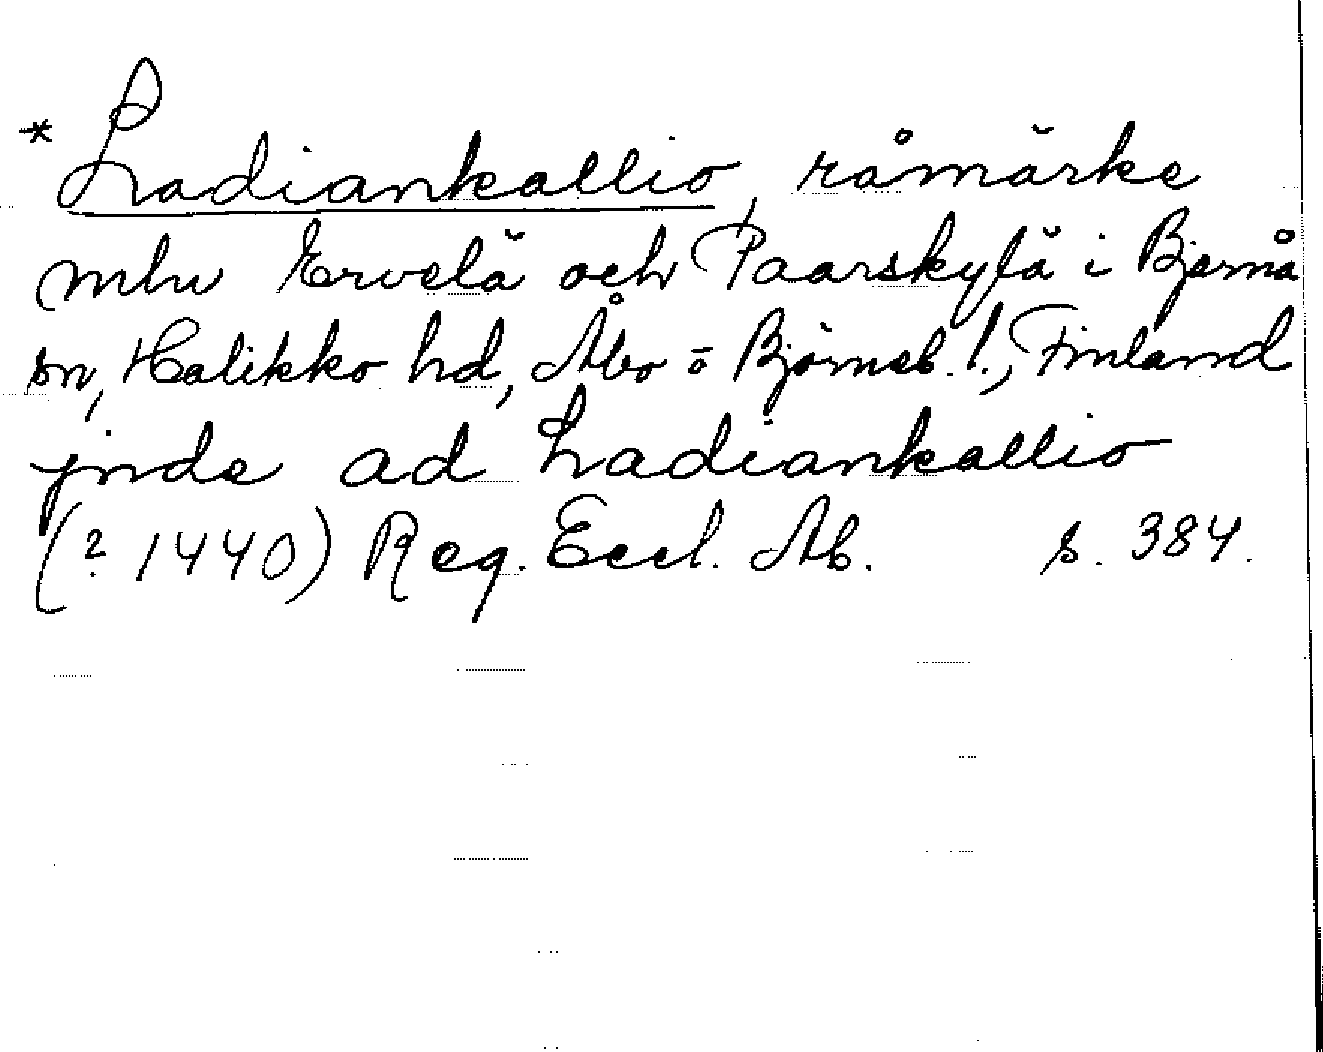 * Ladiankallio, råmärke
mln Ervelä och Paarskylä i Bjärnå
sn, Halikko hd, Åbo o Björneb. l., Finland
jnde ad Ladiankallio
(? 1440) Reg. Eccl. Ab. s. 384.